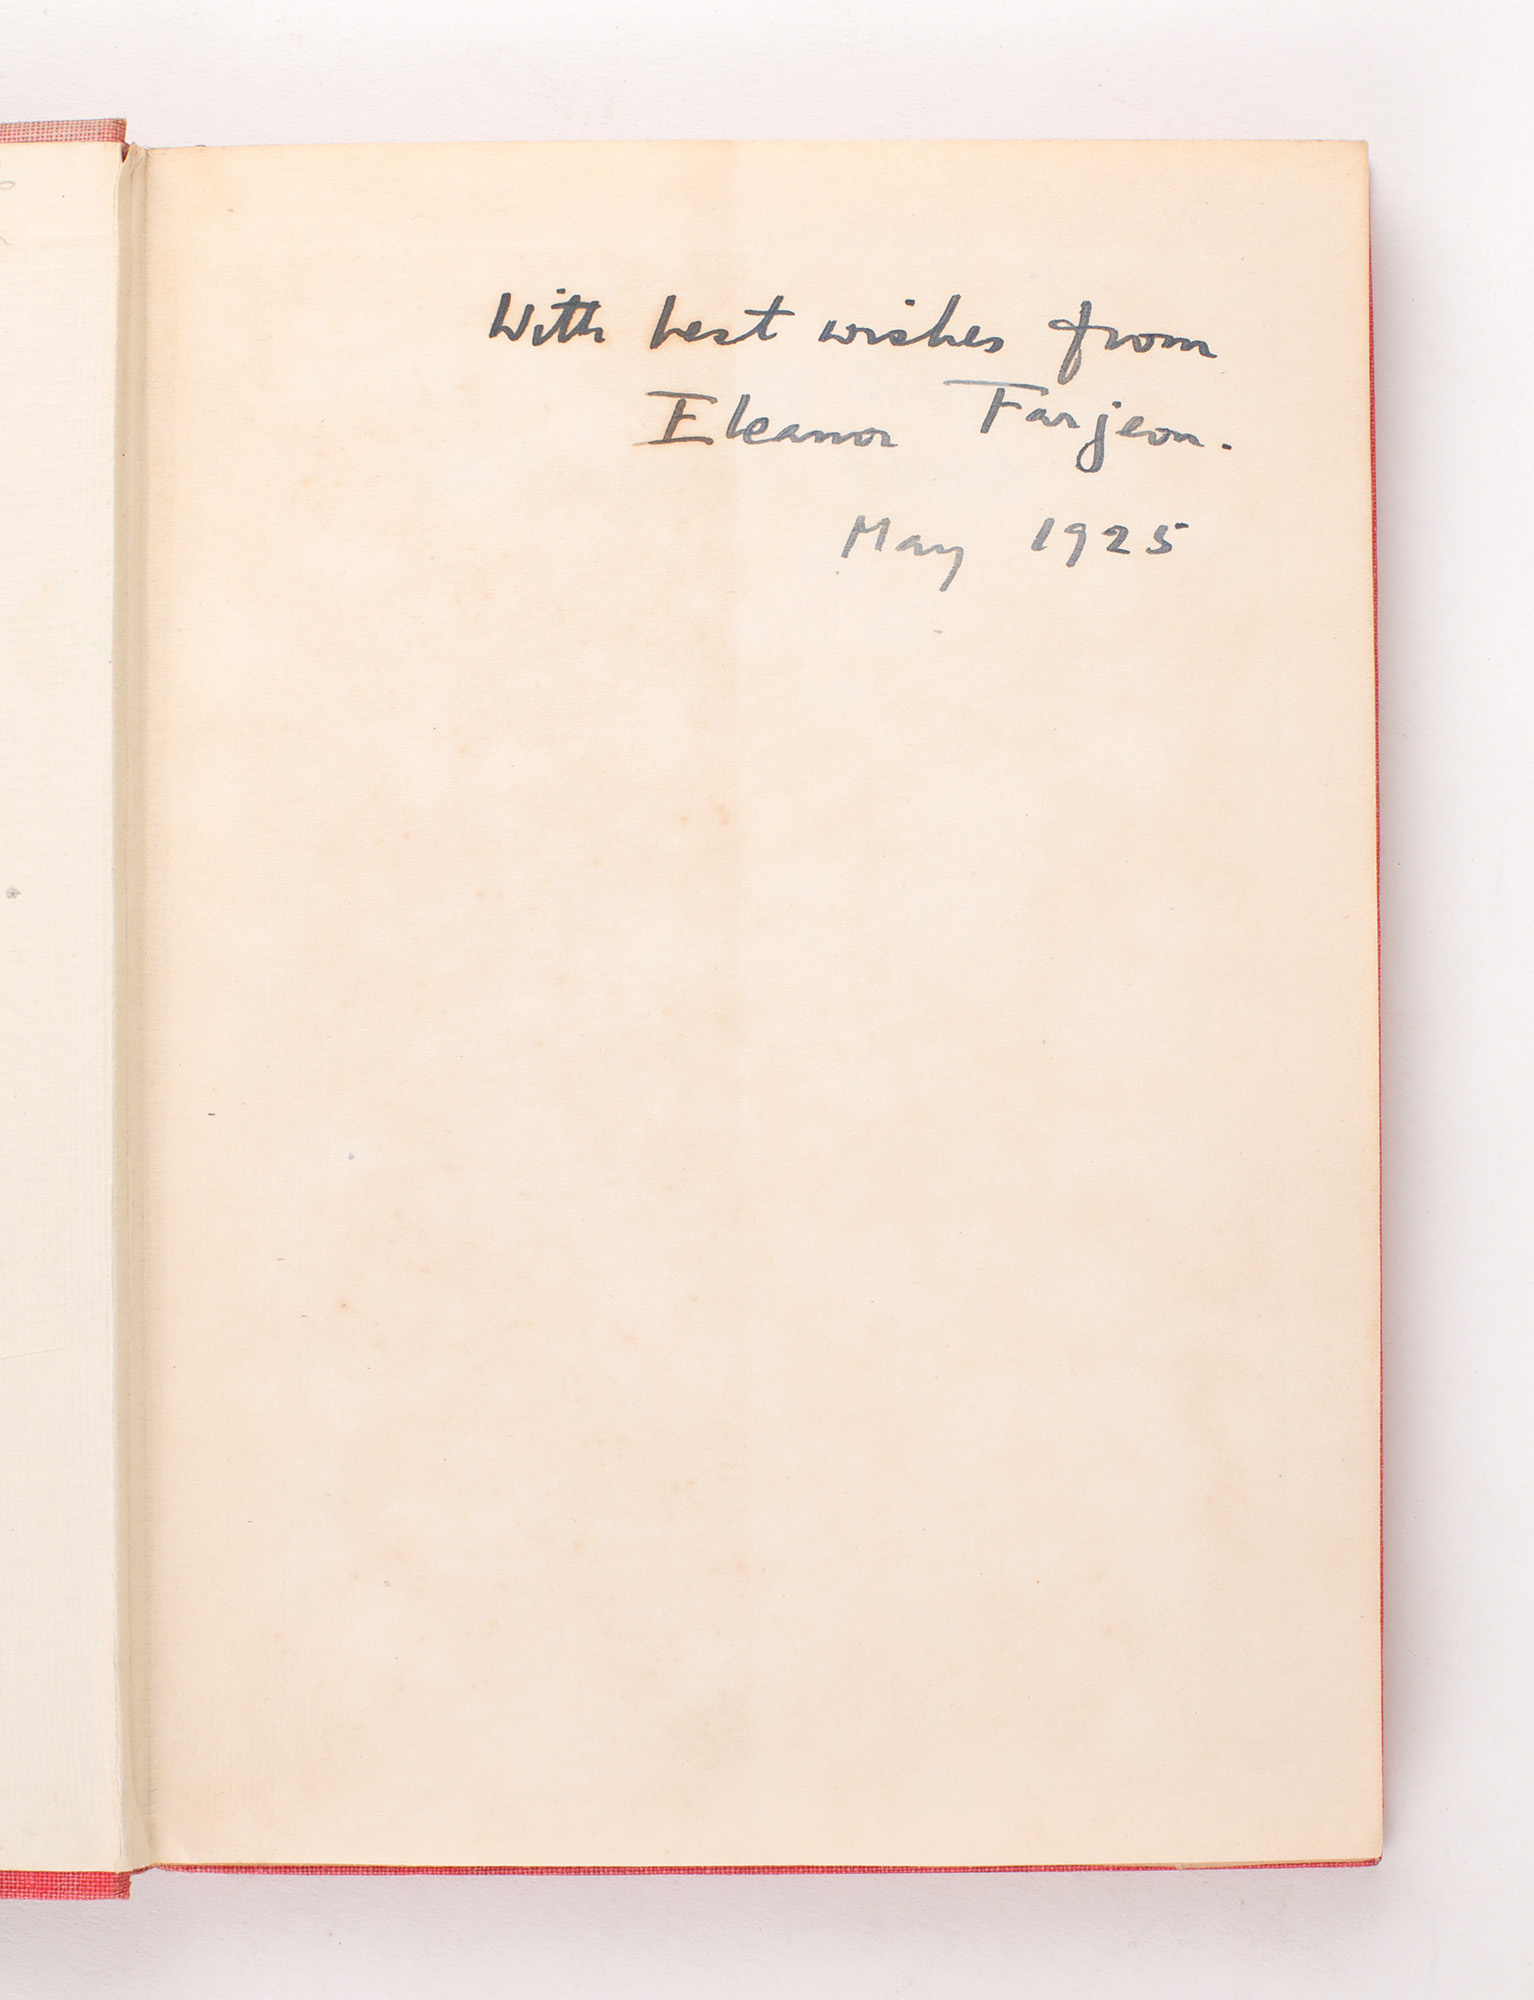 With best wishes from
Eleanor Farjeon.
May 1925